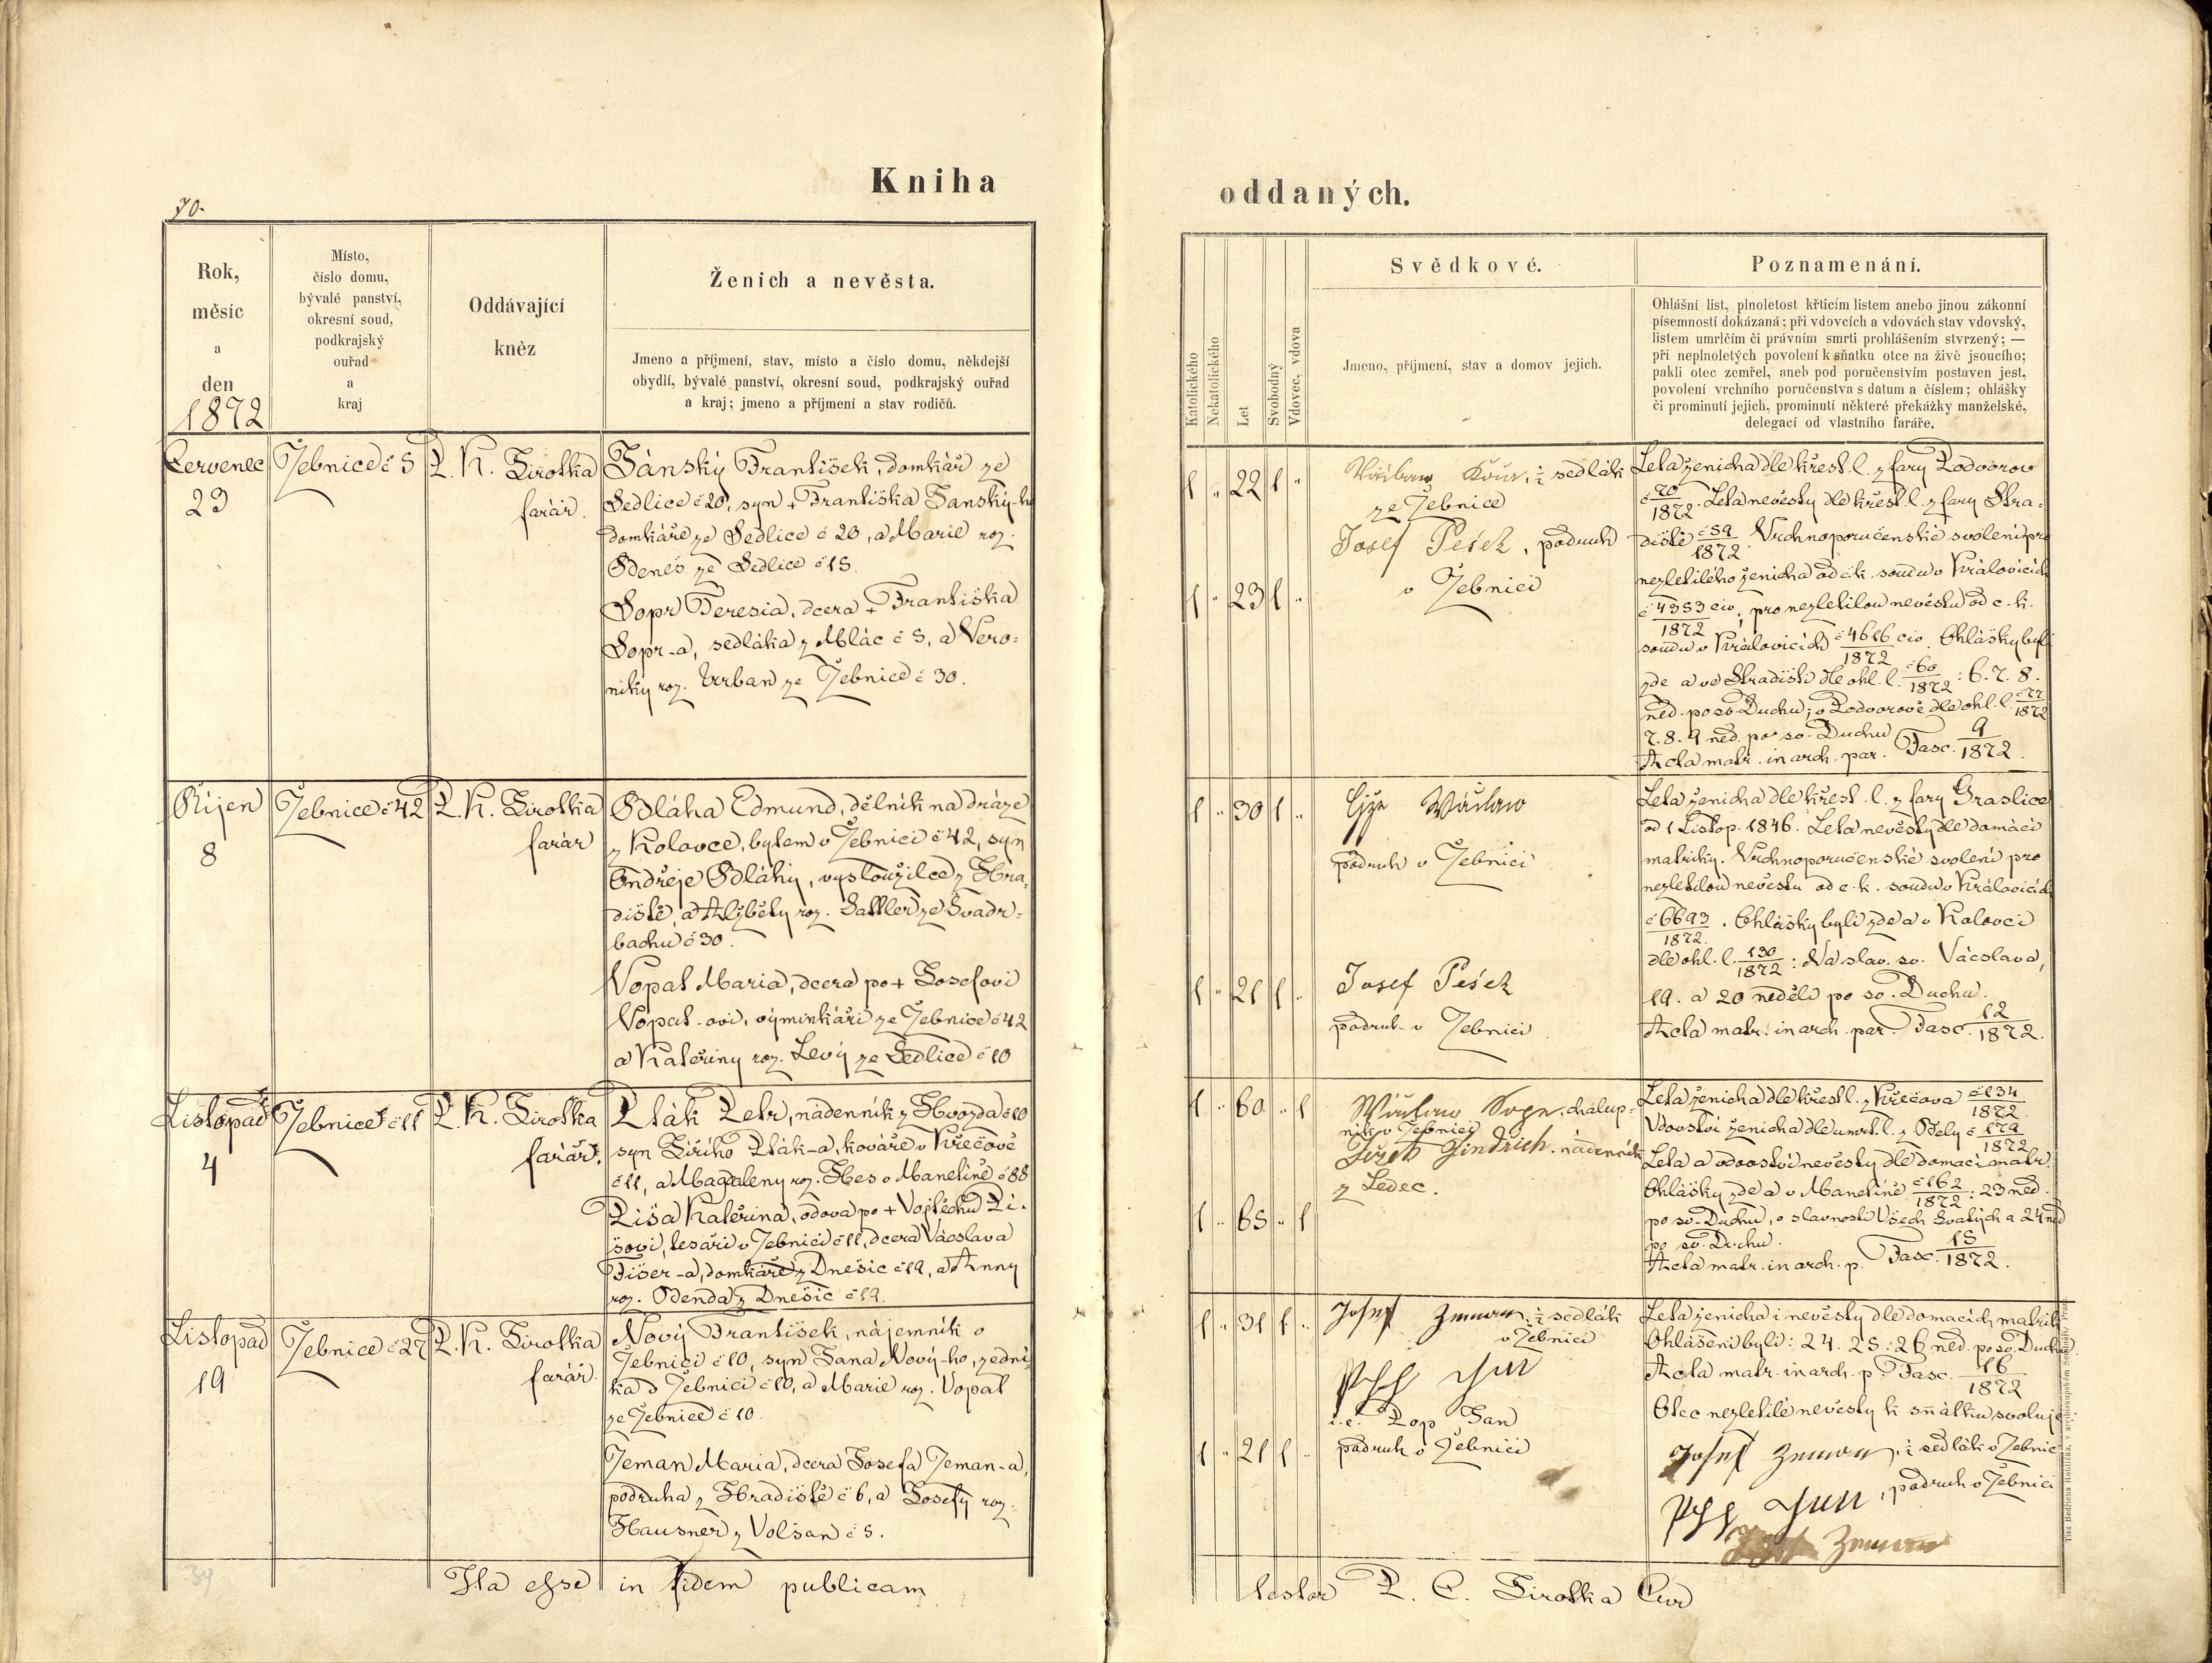 Kniha
70.
Rok,
měsíc
a
den
1872
Místo,
číslo domu,
bývalé panství,
okresní soud,
podkrajský
ouřad
a
kraj
Oddávající
kněz
Ženich a nevěsta.
Jmeno a příjmení, stav, místo a číslo domu, někdejší
obydlí, bývalé panství, okresní soud, podkrajský ouřad
a kraj; jmeno a příjmení a stav rodičů.
Červenec
23
Žebnice č 5
P. K. Jirotka
farář.
Jánský František, domkář ze
Sedlice č 20, syn + Františka Janský-ho
domkáře ze Sedlice č 20, a Marie roz.
Beneš ze Sedlice č 15.
Sopr Teresia, dcera + Františka
Sopr-a, sedláka z Mlác č 5, a Vero=
niky roz. Urban ze Žebnice č 30.
Říjen
8
Žebnice č 42
P. K. Jirotka
farář
Bláha Edmund, dělník na dráze
z Kolovce, bytem v Žebnici č 42, syn
Ondřeje Bláhy, vysloužilce z Hra=
diště, a Alžběty roz. Sattler ze Švadr=
bachu č 30.
Vopat Maria, dcera po + Josefovi
Vopat-ovi, výminkáři ze Žebnice č 42
a Kateřiny roz. Levý ze Sedlice č 10
Listopad
4
Žebnice č 11
P. K. Jirotka
farář.
Pták Petr, nádenník z Hvozda č 10
syn Jiřího Pták-a, kováře v Křečově
č 11, a Magdaleny roz. Hes v Manetíně č 88
Píša Kateřina, vdova po + Vojtěchu Pí=
šovi, tesáři v Žebnici č 11, dcera Vácslava
Fišer-a, domkáře z Dnešic č 19, a Anny
roz. Benda z Dnešic č 19.
Listopad
19
Žebnice č 27
P. K. Jirotka
farář.
Nový František, nájemník v
Žebnici č 10, syn Jana Nový-ho, zední=
ka v Žebnici č 10, a Marie roz. Vopat
ze Žebnice č 10.
Zeman Maria, dcera Josefa Zeman-a,
podruha z Hradiště č 6, a Josefy roz.
Hausner z Volšan č 5.
Ita esse in fidem publicam
oddaných.
Katolického
Nekatolického
Let
Svobodný
Vdovec, vdova
Svědkové.
Jmeno, příjmení, stav a domov jejich.
Poznamenání.
Ohlášní list, plnoletost křticím listem anebo jinou zákonní
písemností dokázaná; při vdovcích a vdovách stav vdovský,
listem umrlčím či právním smrti prohlášením stvrzený; —
při neplnoletých povolení k sňatku otce na živě jsoucího;
pakli otec zemřel, aneb pod poručenstvím postaven jest,
povolení vrchního poručenstva s datum a číslem; ohlášky
či prominutí jejich, prominutí některé překážky manželské,
delegací od vlastního faráře.
1 " 22 1 "
1 " 23 1 "
Václaw Kour, ½ sedlák
ze Žebnice
Josef Pešek, podruh
v Žebnici
Leta ženicha dle křest. l. z fary Podvorov
č 70/1872. Leta nevěsty dle křest. l. z fary Hra=
diště č 59/1872. Vrchnoporučenské svolení pro
nezletilého ženicha od c.k. soudu v Královicích
č 4353 civ/1872, pro nezletilou nevěstu od c.k.
soudu v Královicích č 4616 civ/1872. Ohlášky byly
zde a ve Hradišti dle ohl. l. č 60/1872: 6. 7. 8.
ned. po sv. Duchu; v Podvorově dle ohl. l. č 77/1872
7. 8. 9 ned. po sv. Duchu
Acta matr. in arch. par. Fasc. 9/1872.
1 " 30 1 "
1 " 21 1 "
Václaw
podruh v Žebnici
Josef Pešek
podruh v Žebnici
Leta ženicha dle křest. l. z fary Graslice
od 1 Listop. 1846. Leta nevěsty dle domácí
matriky. Vrchnoporučenské svolení pro
nezletilou nevěstu od c.k. soudu v Královicích
č 6693/1872. Ohlášky byli zde a v Kolovci
dle ohl. l. 130/1872: Na slav. sv. Vácslava,
19. a 20 neděli po sv. Duchu.
Acta matr. in arch. par. Fasc. 12/1872.
1 " 60 " 1
1 " 65 " 1
Wáclaw Sopr, chalup=
ník v Žebnici
Jindřich, nádenník
z Ledec.
Leta ženicha dle křest. l. z Křečova č 134/1872
Vdovství ženicha dle umrl. l. z Bely č 179/1872
Leta a vdovství nevěsty dle domácí matr.
Ohlášky zde a v Manetíně č 162/1872: 23 ned.
po sv. Duchu, o slavnosti Všech Svatých a 24 ned
po sv. Duchu.
Acta matr. in arch. p. Fasc. 15/1872.
1 " 31 1 "
1 " 21 1 "
Josef Zeman, ½ sedlák
v Žebnici
i.e. Pop Jan
podruh v Žebnici
Leta ženicha i nevěsty dle domácích matrik
Ohlášení byli: 24. 25. 26 ned. po sv. Duchu.
Acta matr. in arch. p. Fasc. 16/1872
Otec nezletilé nevěsty k sňátku svoluje:
Josef Zeman, ½ sedlák v Žebnici
, podruh v Žebnici
Zeman
testor P. C. Jirotka Cur